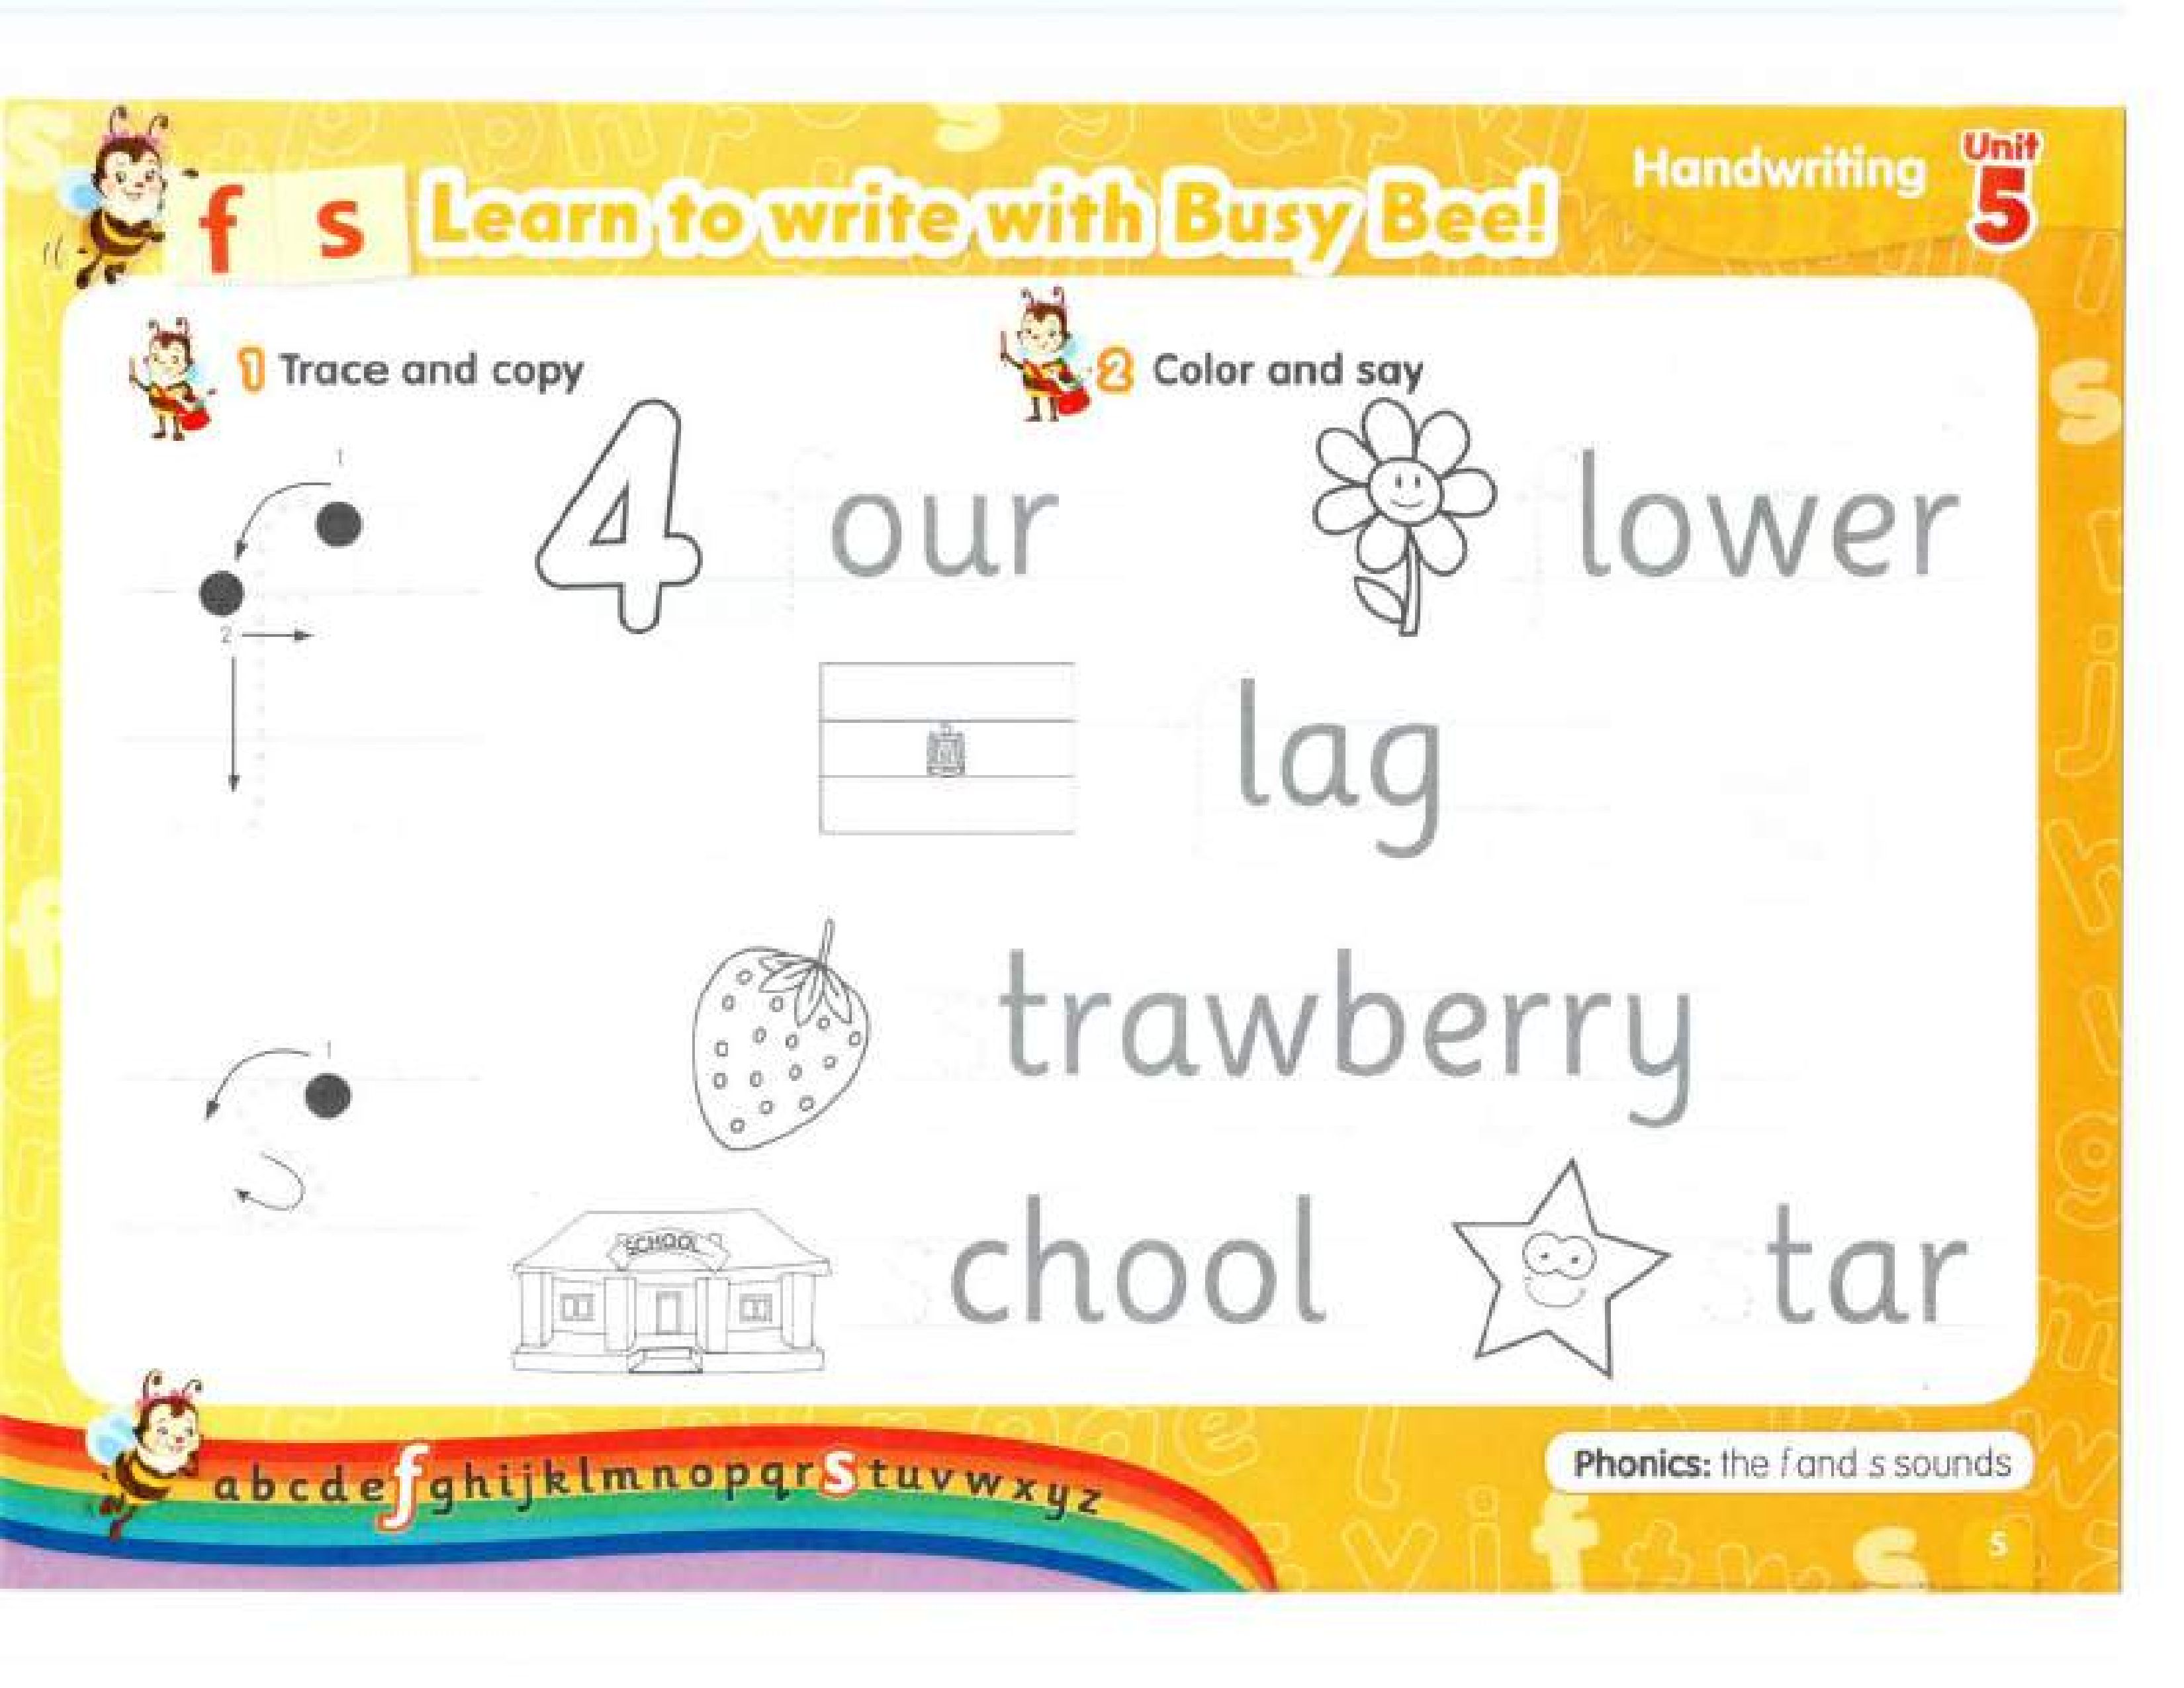 f s Learn to write with Busy Bee!
Handwriting Unit 5
1 Trace and copy
2 Color and say
1
2
4 our
lower
lag
trawberry
1
SCHOOL
chool
tar
a b c d e f g h i j k l m n o p q r s t u v w x y z
Phonics: the f and s sounds
5